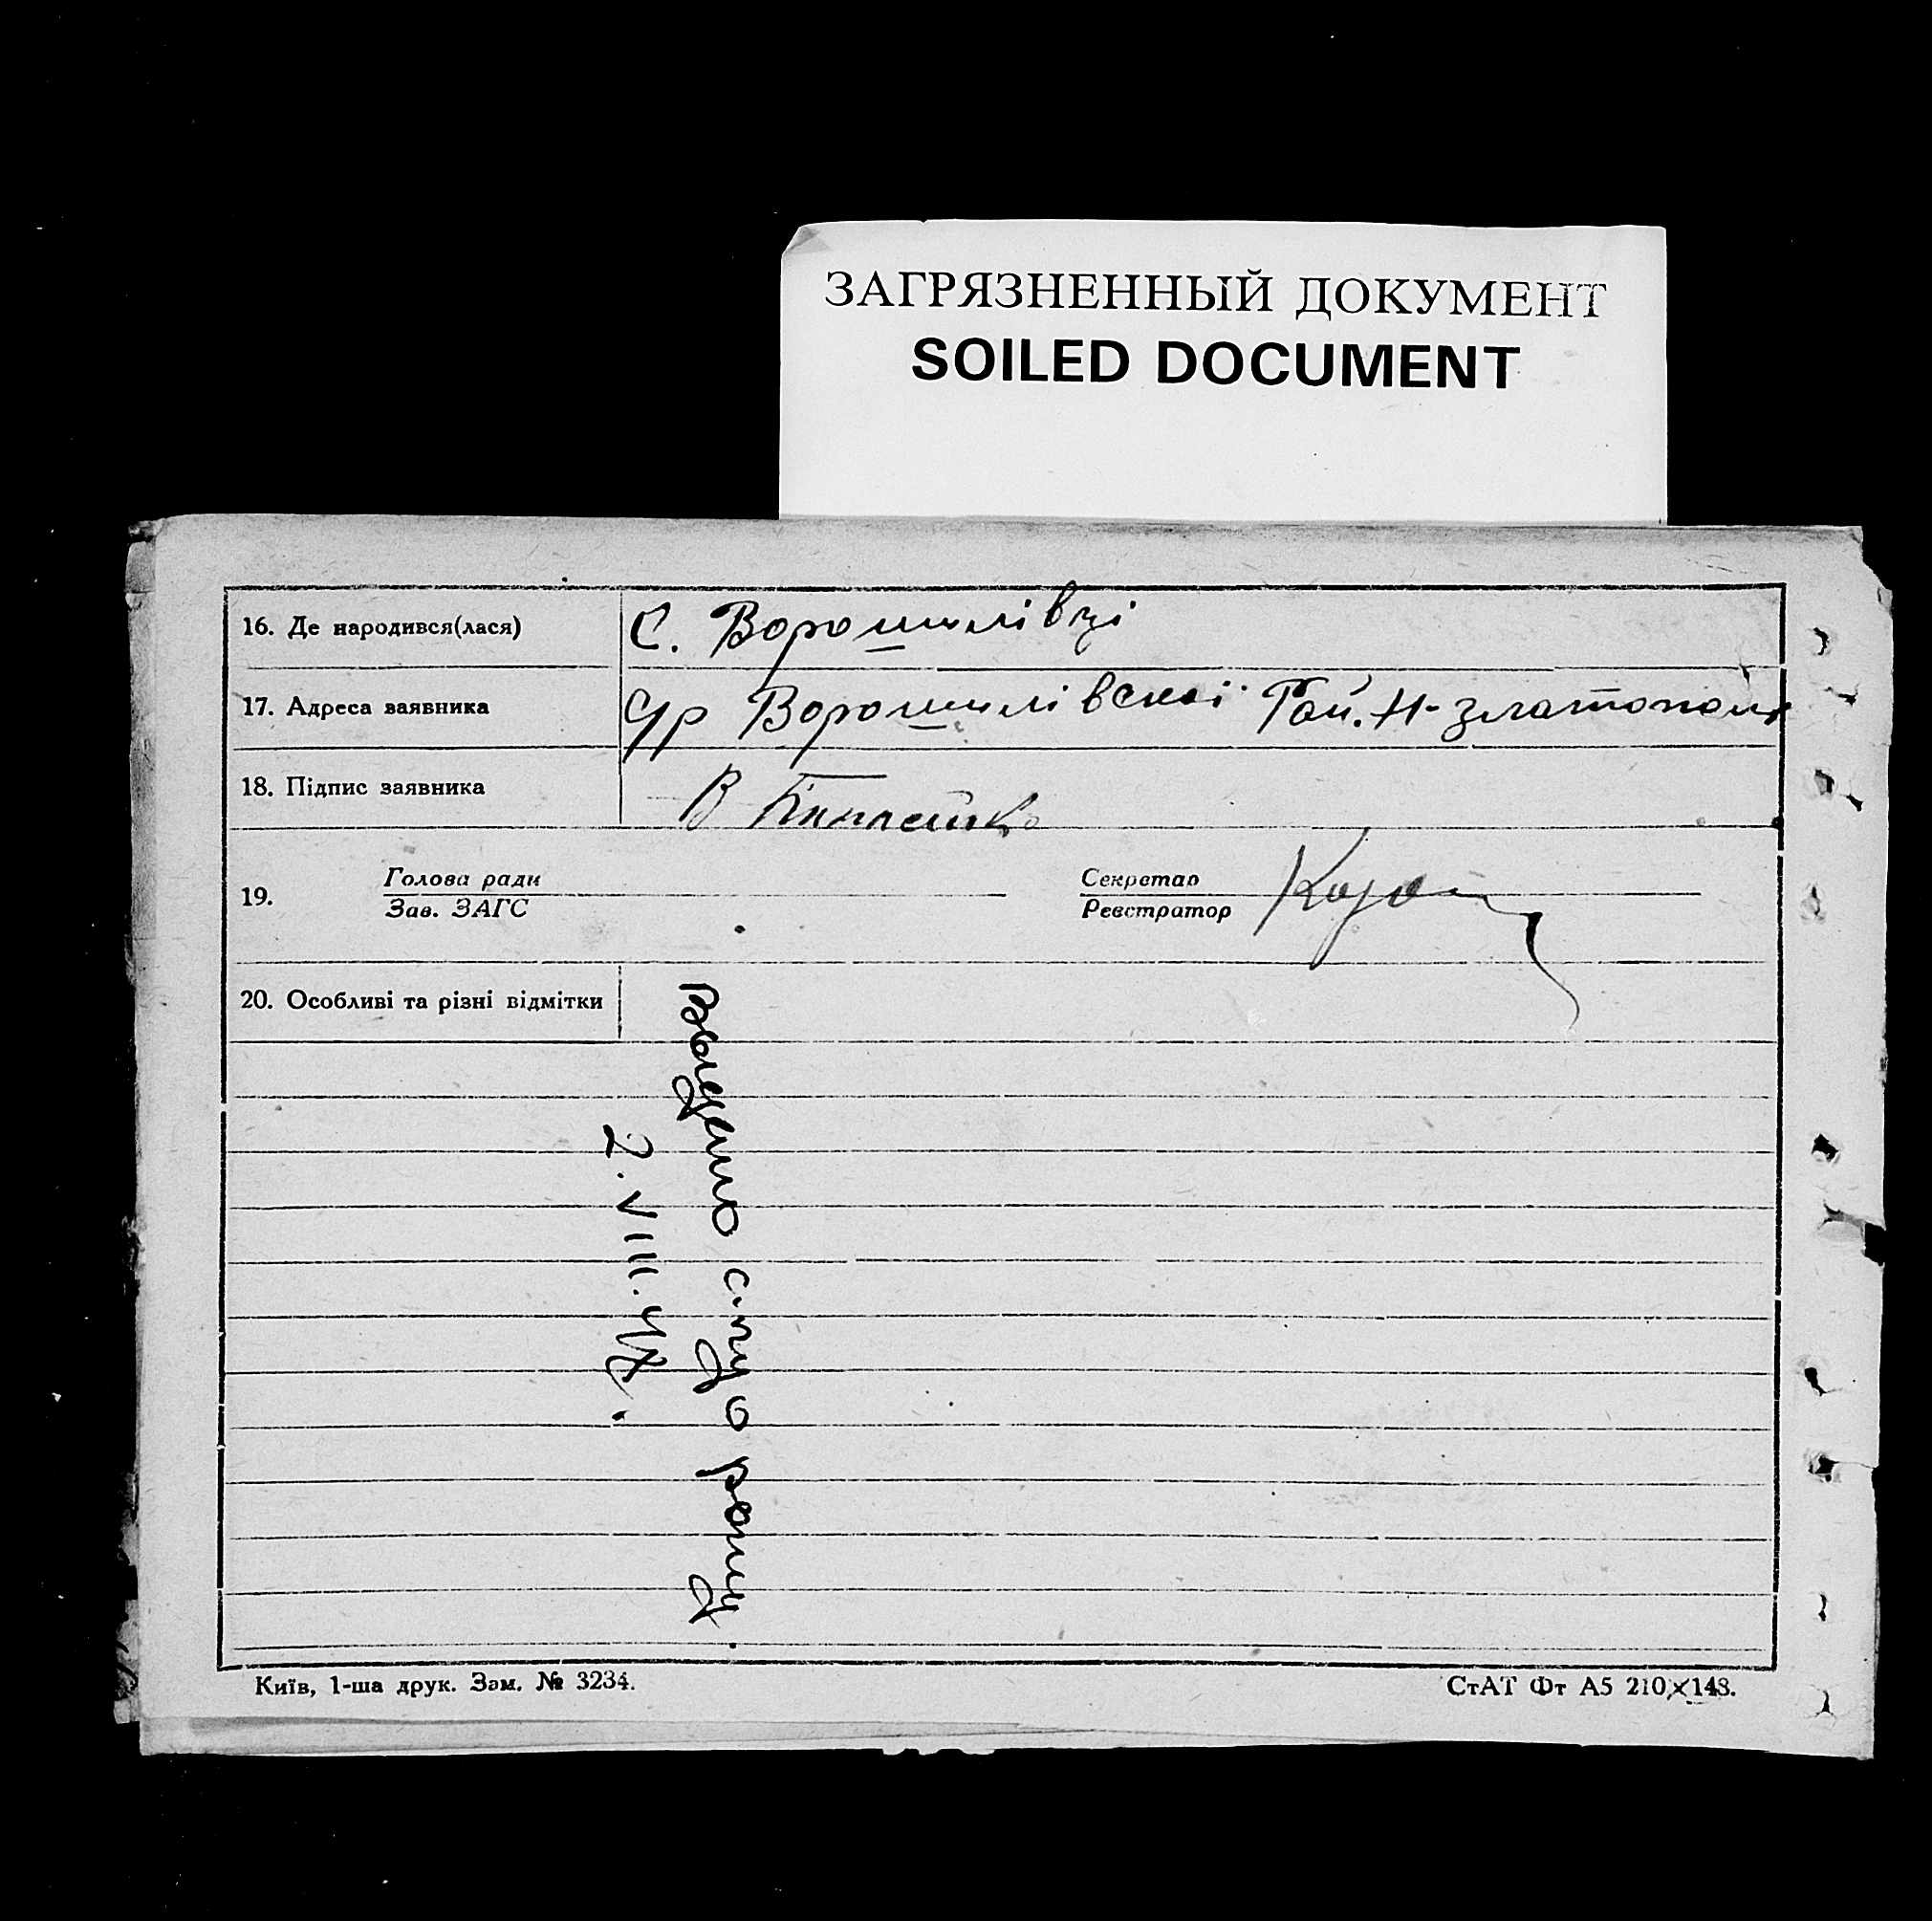 ЗАГРЯЗНЕННЫЙ ДОКУМЕНТ
SOILED DOCUMENT
16. Де народився(лася) С. Ворошилівці
17. Адреса заявника С/р Ворошилівскої Рай. Н-златополь
18. Підпис заявника В
19. Голова ради
Зав. ЗАГС
Секретар
Реєстратор
20. Особливі та різні відмітки
рану.
2. VIII. 47.
Київ, 1-ша друк. Зам. № 3234.
СтАТ Фт А5 210×148.